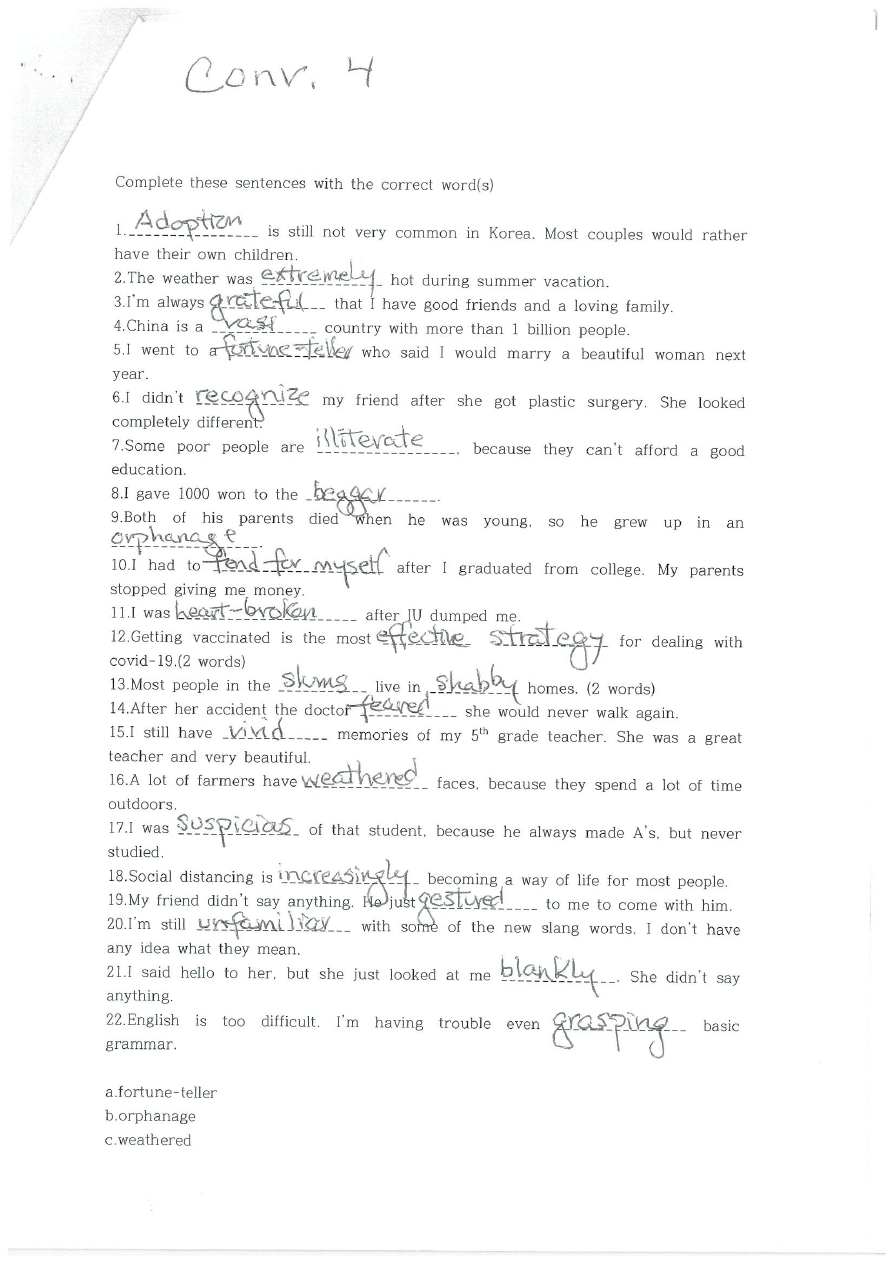 Conv. 4
Complete these sentences with the correct word(s)
1. Adoption is still not very common in Korea. Most couples would rather
have their own children.
2.The weather was extremely hot during summer vacation.
3.I'm always grateful that I have good friends and a loving family.
4.China is a vast country with more than 1 billion people.
5.I went to a fortune-teller who said I would marry a beautiful woman next
year.
6.I didn't recognize my friend after she got plastic surgery. She looked
completely different.
7.Some poor people are illiterate, because they can't afford a good
education.
8.I gave 1000 won to the beggar.
9.Both of his parents died when he was young, so he grew up in an
orphanage.
10.I had to fend for myself after I graduated from college. My parents
stopped giving me money.
11.I was heart-broken after JU dumped me.
12.Getting vaccinated is the most effective strategy for dealing with
covid-19.(2 words)
13.Most people in the slums live in shabby homes. (2 words)
14.After her accident the doctor feared she would never walk again.
15.I still have vivid memories of my 5th grade teacher. She was a great
teacher and very beautiful.
16.A lot of farmers have weathered faces, because they spend a lot of time
outdoors.
17.I was suspicias of that student, because he always made A's, but never
studied.
18.Social distancing is increasingly becoming a way of life for most people.
19.My friend didn't say anything. He just gestured to me to come with him.
20.I'm still unfamiliar with some of the new slang words. I don't have
any idea what they mean.
21.I said hello to her, but she just looked at me blankly. She didn't say
anything.
22.English is too difficult. I'm having trouble even grasping basic
grammar.
a.fortune-teller
b.orphanage
c.weathered